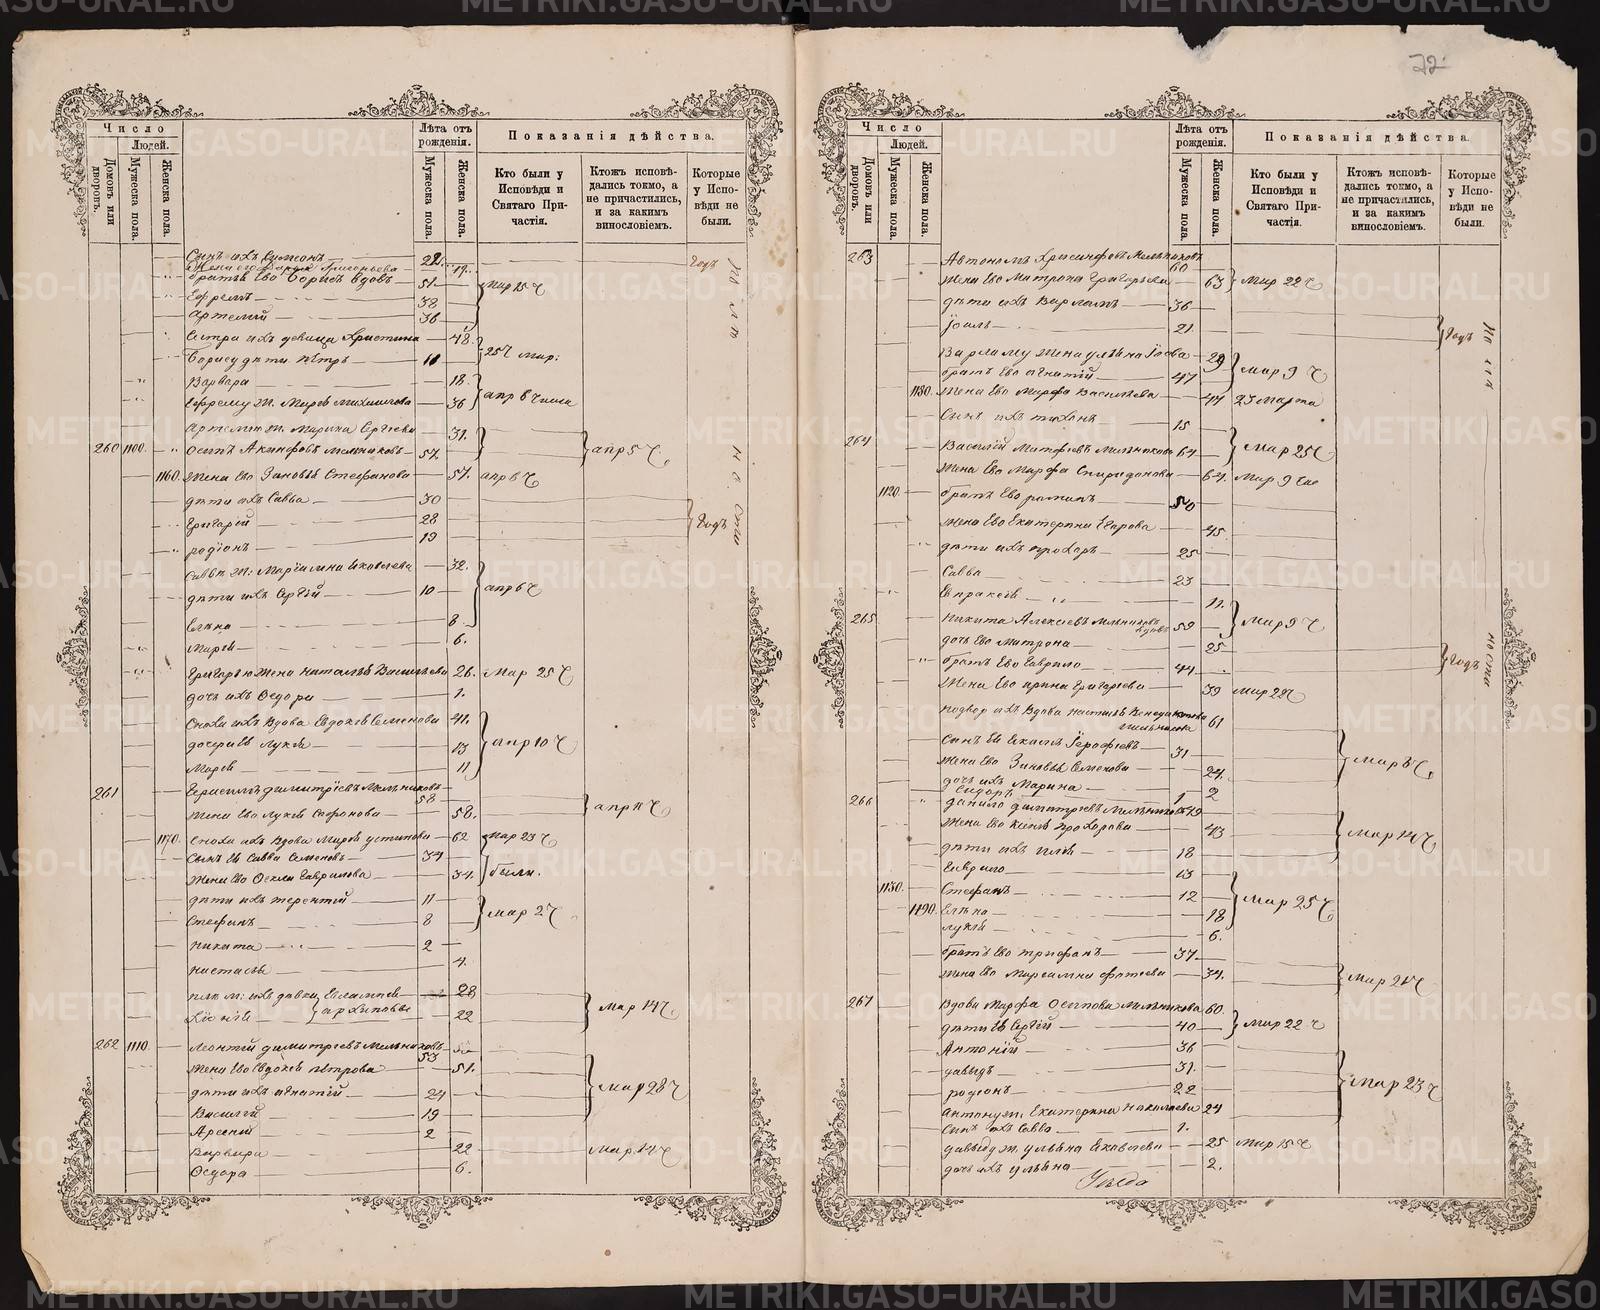 72
Число
Людей.
Домовъ или дворовъ.
Мужеска пола.
Женска пола.
Лѣта отъ рожденія.
Мужеска пола.
Женска пола.
Показанія дѣйства.
Кто были у Исповѣди и Святаго Причастія.
Ктожъ исповѣдались токмо, а не причастились, и за какимъ винословіемъ.
Которые у Исповѣди не были.
Сынъ ихъ Симеонъ 22
Жена его Григорьева 19
братья Ево Борисъ вдовъ 51
Мар 25 Ч
Ефремъ 38
Артемій 36
Сестра ихъ девица Христина 48
Борису дѣти Пѣтръ 11
25 Ч мар:
Варвара 18
Ефрему ж. Марѳа 36
апр 8 числа
Артемию ж. Марина Сергеева 31
260 1100 Осипъ Акинфовъ Мельниковъ 57
апр 5 Ч
1160 Жена Ево Зиновья Стефанова 57 апр 6 Ч
дѣти ихъ Савва 30
Григорій 28
родіонъ 19
Годъ
Саввы ж: Яковлева 32
дѣти ихъ Сергій 10
апр 6 Ч
Елѣна 8
Марѳа 6
Григорью жена Наталья Васильева 26 Мар 25 Ч
дочь ихъ Ѳедора 1
Сноха ихъ вдова Евдокея Семенова 41
дочери ее Лукея 13
апр 10 Ч
Марѳа 11
261 димитріевъ Мельниковъ 58
апр 11 Ч
Жена Ево Лукея Сафонова 58
1170 Сноха ихъ вдова Марѳа Устинова 62 Мар 23 Ч
Сынъ ея Савва Семеновъ 34
Жена Ево Ѳекла Гаврилова 34
были.
дѣти ихъ терентій 11
Стефанъ 8
Мар 27
никита 2
настасья 4
28
22
Мар 14 Ч
262 1110 Леонтій димитріевъ Мельниковъ 53
Жена Ево Евдокея Петрова 51
дѣти ихъ игнатій 24
Мар 28 Ч
Василій 19
Арсеній 2
Варвара 22
Мар 14 Ч
Ѳедора 6
Число
Людей.
Домовъ или дворовъ.
Мужеска пола.
Женска пола.
Лѣта отъ рожденія.
Мужеска пола.
Женска пола.
Показанія дѣйства.
Кто были у Исповѣди и Святаго Причастія.
Ктожъ исповѣдались токмо, а не причастились, и за какимъ винословіемъ.
Которые у Исповѣди не были.
263 Автономъ Хрисанфовъ Мельниковъ 60
Жена Ево Матрона Григорьева 63 Мар 22 Ч
дѣти ихъ Варламъ 36
Іоиль 21
Годъ
Варламу жена ульяна Іовва 29
братъ Ево игнатій 47
Мар 9 Ч
1180 Жена Ево Марфа Васильева 47 23 Марта
Сынъ ихъ тихонъ 15
264 Василій Матфеевъ Мельниковъ 64
Мар 25 Ч
Жена Ево Марфа Спиридонова 64 Мар 9 Ч
1120 братъ Ево романъ 50
Жена Ево Екатерина Егорова 45
дѣти ихъ прохоръ 25
Савва 23
Евпраксія 11
265 Никита Алексеевъ Мельниковъ вдовъ 59
Мар 9 Ч
дочь Ево матрона 25
братъ Ево Гаврило 44
Годъ
Жена Ево ирина Григорьева 39 Мар 22 Ч
61
31
Мар 8 Ч
Жена Ево Зиновья Семенова 24
дочь ихъ Марина 2
Сидоръ 1
266 данило димитріевъ Мельниковъ 49
Жена Ево Прохорова 43
Мар 14 Ч
дѣти ихъ илья 18
Гаврило 13
1130 Стефанъ 12
1190 Елѣна 18
Мар 25 Ч
лукея 6
братъ Ево трифонъ 37
Жена Ево фатеева 34
Мар 21 Ч
267 Вдова Марфа Осипова Мельникова 60
дѣти ея Сергій 40
Мар 22 Ч
Антоній 36
давыдъ 31
родіонъ 22
Мар 23 Ч
Антону ж. Екатерина Николаева 24
Сынъ ихъ Савва 1
давыду ж. ульяна Яковлева 25 Мар 15 Ч
дочь ихъ ульяна 2
METRIKI.GASO-URAL.RU